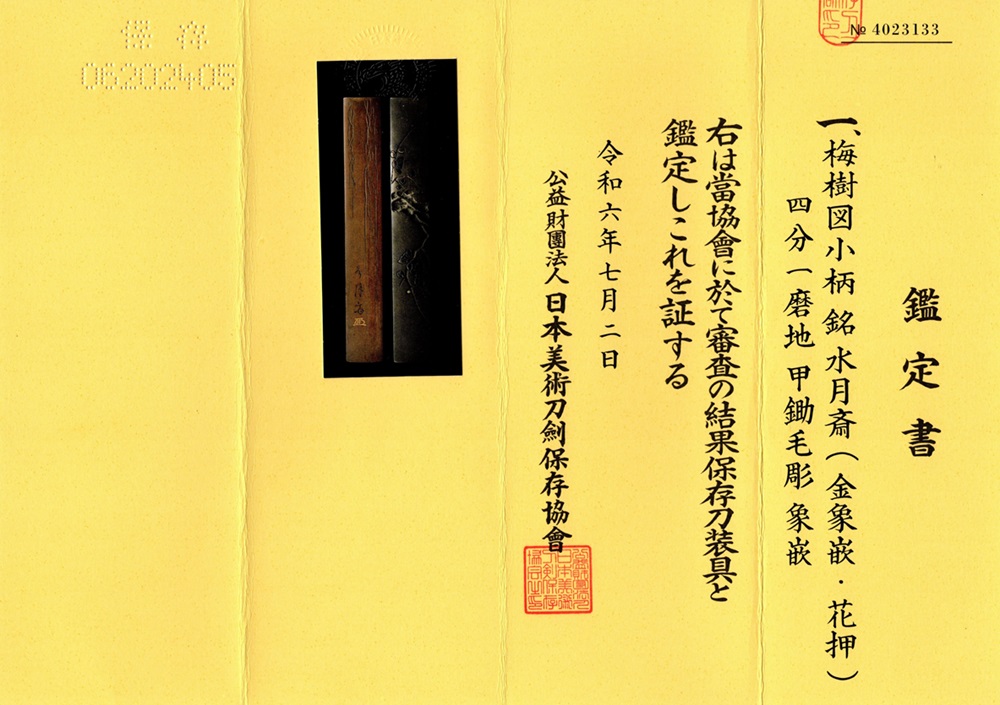 № 4023133
鑑定書
一、梅樹図小柄 銘 水月斎(金象嵌・花押)
四分一磨地 甲鋤毛彫 象嵌
右は當協會に於て審査の結果保存刀装具と
鑑定しこれを証する
令和六年七月二日
公益財團法人 日本美術刀劍保存協會
保存
06202405